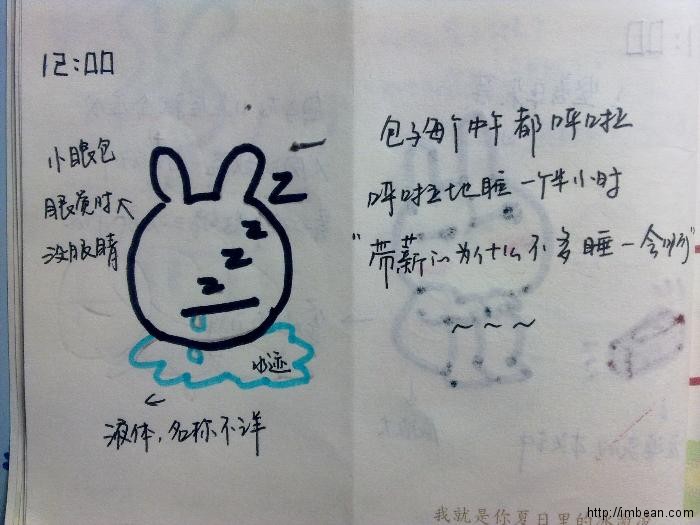 12:00
小眼包
睡觉时不
没眼睛
z
z
z
z
水迹
液体，名称不详
包子每个中午都呼啦
呼啦地睡一个半小时
“带薪的为什么不多睡一会嘛”
~ ~ ~
我就是你夏日里的
http://imbean.com